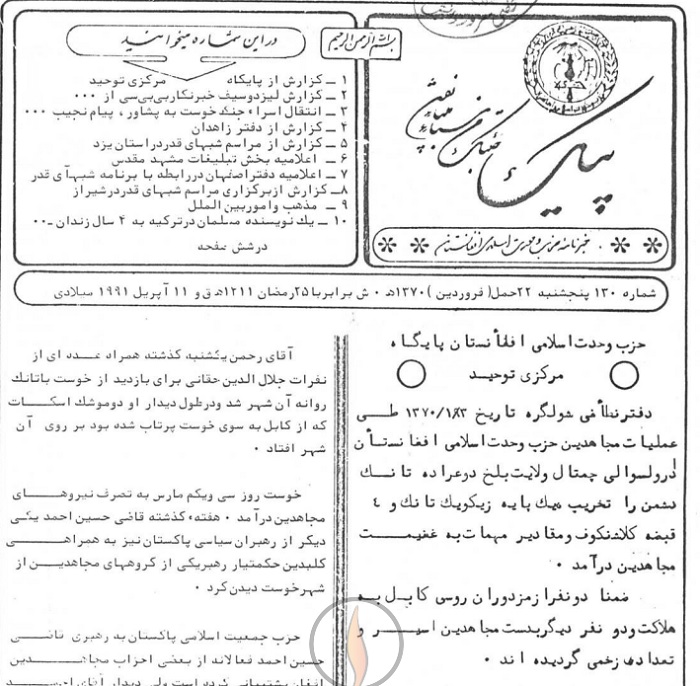 بسم الله الرحمن الرحیم
در این شماره میخوانید
۱ ــ گزارش از پایگاه مرکزی توحید
۲ ــ گزارش لیزدوسیف خبرنگار بی بی سی از ۰۰۰
۳ ــ انتقال اسراء جنگ خوست به پشاور ، پیام نجیب ۰۰۰
۴ ــ گزارش از دفتر زاهدان
۵ ــ گزارش از مراسم شبهای قدر در استان یزد
۶ ــ اعلامیه بخش تبلیغات مشهد مقدس
۷ ــ اعلامیه دفتر اصفهان در رابطه با برنامه شبهای قدر
۸ــ گزارش از برگزاری مراسم شبهای قدر در شیراز
۹ ــ مذهب و امور بین الملل
۱۰ ــ یک نویسنده مسلمان در ترکیه به ۴ سال زندان ــ۰۰
در شش صفحه
پیک
خبرنامه حزب وحدت اسلامی افغانستان
شماره ۱۳۰ پنجشنبه ۲۲حمل( فروردین )۱۳۷۰هـ ۰ ش برابر با ۲۵رمضان ۱۲۱۱هـ ق و ۱۱ آپریل ۱۹۹۱ میلادی
حزب وحدت اسلامی افغانستان پایگاه
مرکزی توحید
دفتر نظامی شولگره تاریخ ۱۳۷۰/۱/۲۳ طی
عملیات مجاهدین حزب وحدت اسلامی افغانستان
در ولسوالی چمتال ولایت بلخ دوعراده تانک
دشمن را تخریب میک پایه زیکویک تانک و ٤
قبضه کلاشنکوف و مقادیر مهمات به غنیمت
مجاهدین درآمد ۰
ضمنا دونفر از مزدوران روسی کابل به
هلاکت و دو نفر دیگر بدست مجاهدین اسیر و
تعدادی زخمی گردیده اند ۰
آقای رحمن یکشنبه گذشته همراه عده ای از
نفرات جلال الدین حقانی برای بازدید از خوست با تانک
روانه آن شهر شد و در طول دیدار او دو موشک اسکات
که از کابل به سوی خوست پرتاب شده بود بر روی آن
شهر افتاد ۰
خوست روز سی ویکم مارس به تصرف نیروهای
مجاهدین درآمد ۰ هفته گذشته قاضی حسین احمد یکی
دیگر از رهبران سیاسی پاکستان نیز به همراهی
گلبدین حکمتیار رهبر یکی از گروههای مجاهدین از
شهر خوست دیدن کرد ۰
حزب جمعیت اسلامی پاکستان به رهبری قاضی
حسین احمد فعالانه از بعضی احزاب مجاهدین
افغان پشتیبانی کرده است ولی دیدار آقای احمد